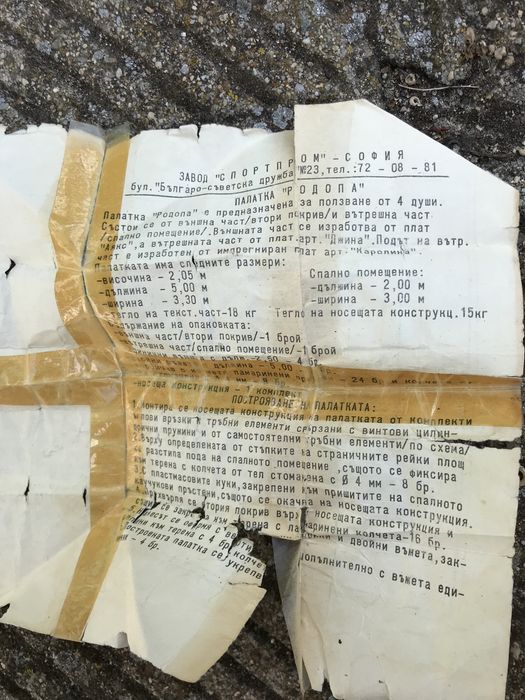 ЗАВОД "СПОРТПРОМ" - СОФИЯ
бул."Българо-съветска дружба №23,тел.:72 - 08 - 81
ПАЛАТКА "РОДОПА"
Палатка "Родопа" е предназначена за ползване от 4 души.
Състои се от външна част/втори покрив/и вътрешна част
/спално помещение/.Външната част се изработва от плат
"Аякс",а вътрешната част от плат арт."Джина".Подът на вътр.
част е изработен от импрегниран плат арт."Каролина".
Палатката има следните размери:
-височина - 2,05 м
-дължина - 5,00 м
-ширина - 3,30 м
Спално помещение:
-дължина - 2,00 м
-ширина - 3,00 м
-тегло на текст.част-18 кг Тегло на носещата конструкц.15кг
Съдържание на опаковката:
външна част/втори покрив/-1 брой
вътрешна част/спално помещение/-1 брой
4 бр.
дължина - 5,00
24 бр.
-носеща конструкция - 1 комплект
ПОСТРОЯВАНЕ НА ПАЛАТКАТА:
1.Монтира се носещата конструкция на палатката от комплекти
ъглови връзки и тръбни елементи свързани с винтови цилин-
дрични пружини и от самостоятелни тръбни елементи/по схема/
2.Върху определената от стъпките на страничните рейки площ
се разстила пода на спалното помещение ,същото се фиксира
към терена с колчета от тел стоманена с Ø 4 мм - 8 бр.
3.С пластмасовите куки,закрепени към пришитите на спалното
каучукови пръстени,същото се окачва на носещата конструкция.
втория покрив върху носещата конструкция и
се закрепва към терена с ламаринени колчета-16 бр.
и двойни въжета,зак-
към терена с 4 бр. колчета
палатка се укрепва допълнително с въжета еди-
- 4 бр.